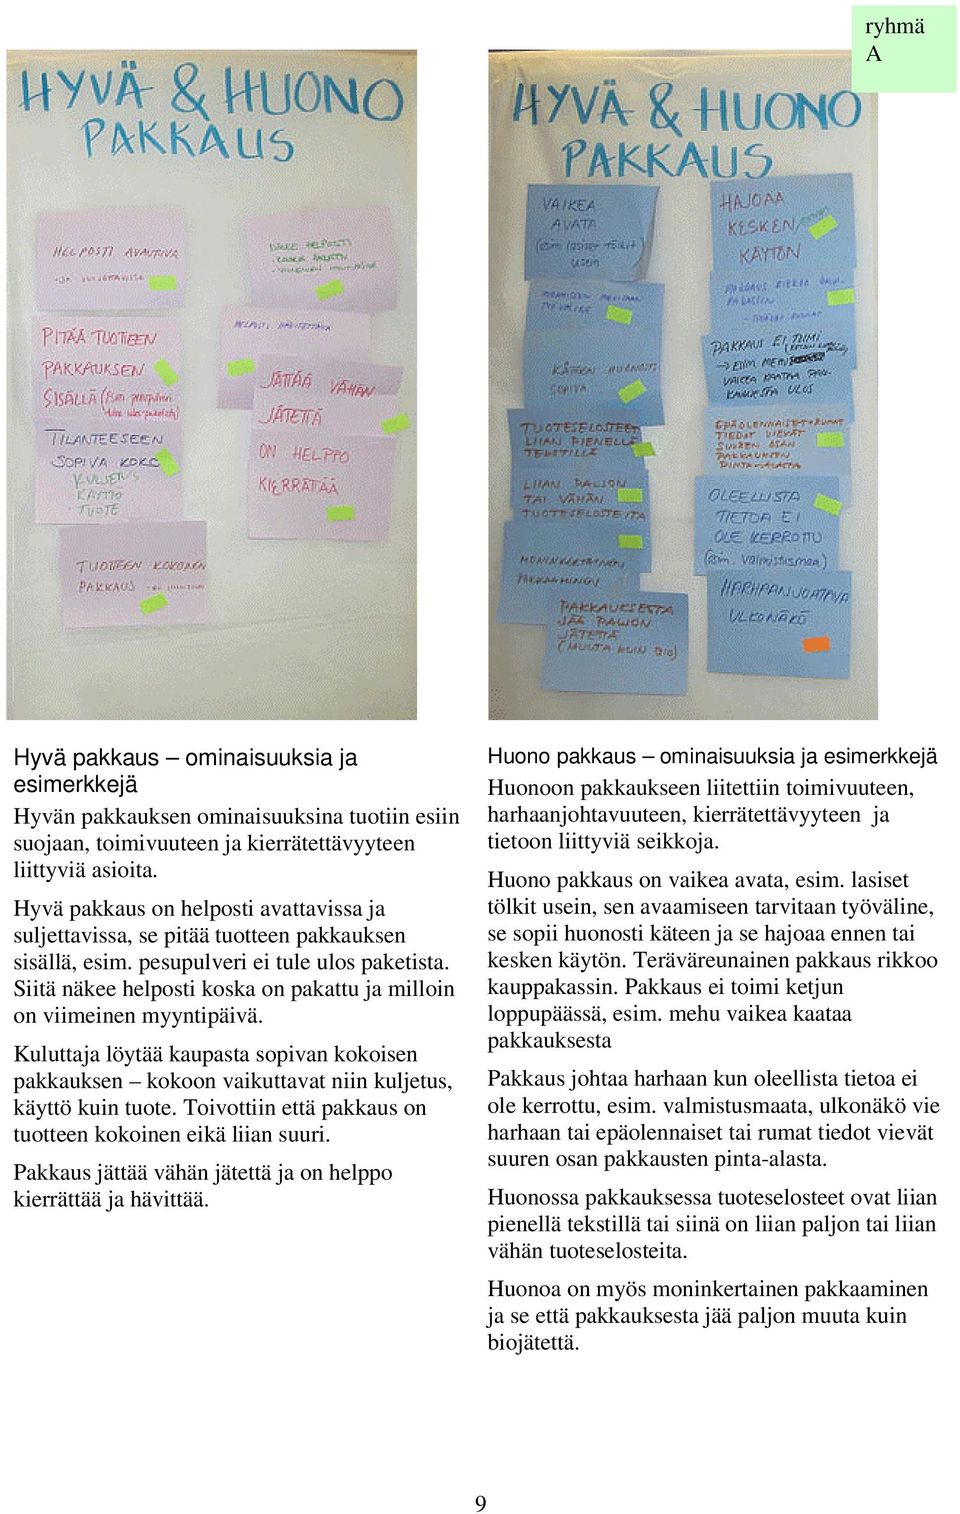 ryhmä
A
HYVÄ & HUONO
PAKKAUS
HELPOSTI AVAUTUVA
PITÄÄ TUOTTEEN
PAKKAUKSEN
SISÄLLÄ (Esim. pesupulveri
TILANTEESEEN
SOPIVA KOKO
KULJETUS
KÄYTTÖ
TUOTE
TUOTTEEN KOKOINEN
PAKKAUS
NÄKEE HELPOSTI
KOSKA PAKATTU
HELPOSTI HÄVITETTÄVÄ
JÄTTÄÄ VÄHÄN
JÄTETTÄ
ON HELPPO
KIERRÄTTÄÄ
HYVÄ & HUONO
PAKKAUS
VAIKEA
AVATA
(esim lasiset tölkit)
usein
AVAAMISEEN TARVITAAN
TYÖVÄLINE
KÄTEEN HUONOSTI
SOPIVA
TUOTESELOSTEET
LIIAN PIENELLÄ
TEKSTILLÄ
LIIAN PALJON
TAI VÄHÄN
TUOTESELOSTEITA
MONINKERTAINEN
PAKKAAMINEN
PAKKAUKSESTA
JÄÄ PALJON
JÄTETTÄ
(MUUTA KUIN BIO)
HAJOAA
KESKEN/
KÄYTÖN
PAKKAUS RIKKOO
PAKKAUS EI TOIMI
→ ESIM MEHU
VAIKEA KAATAA PAK-
KAUKSESTA ULOS
EPÄOLENNAISET+RUMAT
TIEDOT VIEVÄT
SUUREN OSAN
PAKKAUKSEN
PINTA-ALASTA
OLEELLISTA
TIETOA EI
OLE KERROTTU
(esim. valmistusmaa)
HARHAANJOHTAVA
ULKONÄKÖ
Hyvä pakkaus – ominaisuuksia ja
esimerkkejä
Hyvän pakkauksen ominaisuuksina tuotiin esiin
suojaan, toimivuuteen ja kierrätettävyyteen
liittyviä asioita.
Hyvä pakkaus on helposti avattavissa ja
suljettavissa, se pitää tuotteen pakkauksen
sisällä, esim. pesupulveri ei tule ulos paketista.
Siitä näkee helposti koska on pakattu ja milloin
on viimeinen myyntipäivä.
Kuluttaja löytää kaupasta sopivan kokoisen
pakkauksen – kokoon vaikuttavat niin kuljetus,
käyttö kuin tuote. Toivottiin että pakkaus on
tuotteen kokoinen eikä liian suuri.
Pakkaus jättää vähän jätettä ja on helppo
kierrättää ja hävittää.
Huono pakkaus – ominaisuuksia ja esimerkkejä
Huonoon pakkaukseen liitettiin toimivuuteen,
harhaanjohtavuuteen, kierrätettävyyteen ja
tietoon liittyviä seikkoja.
Huono pakkaus on vaikea avata, esim. lasiset
tölkit usein, sen avaamiseen tarvitaan työväline,
se sopii huonosti käteen ja se hajoaa ennen tai
kesken käytön. Teräväreunainen pakkaus rikkoo
kauppakassin. Pakkaus ei toimi ketjun
loppupäässä, esim. mehu vaikea kaataa
pakkauksesta
Pakkaus johtaa harhaan kun oleellista tietoa ei
ole kerrottu, esim. valmistusmaata, ulkonäkö vie
harhaan tai epäolennaiset tai rumat tiedot vievät
suuren osan pakkausten pinta-alasta.
Huonossa pakkauksessa tuoteselosteet ovat liian
pienellä tekstillä tai siinä on liian paljon tai liian
vähän tuoteselosteita.
Huonoa on myös moninkertainen pakkaaminen
ja se että pakkauksesta jää paljon muuta kuin
biojätettä.
9